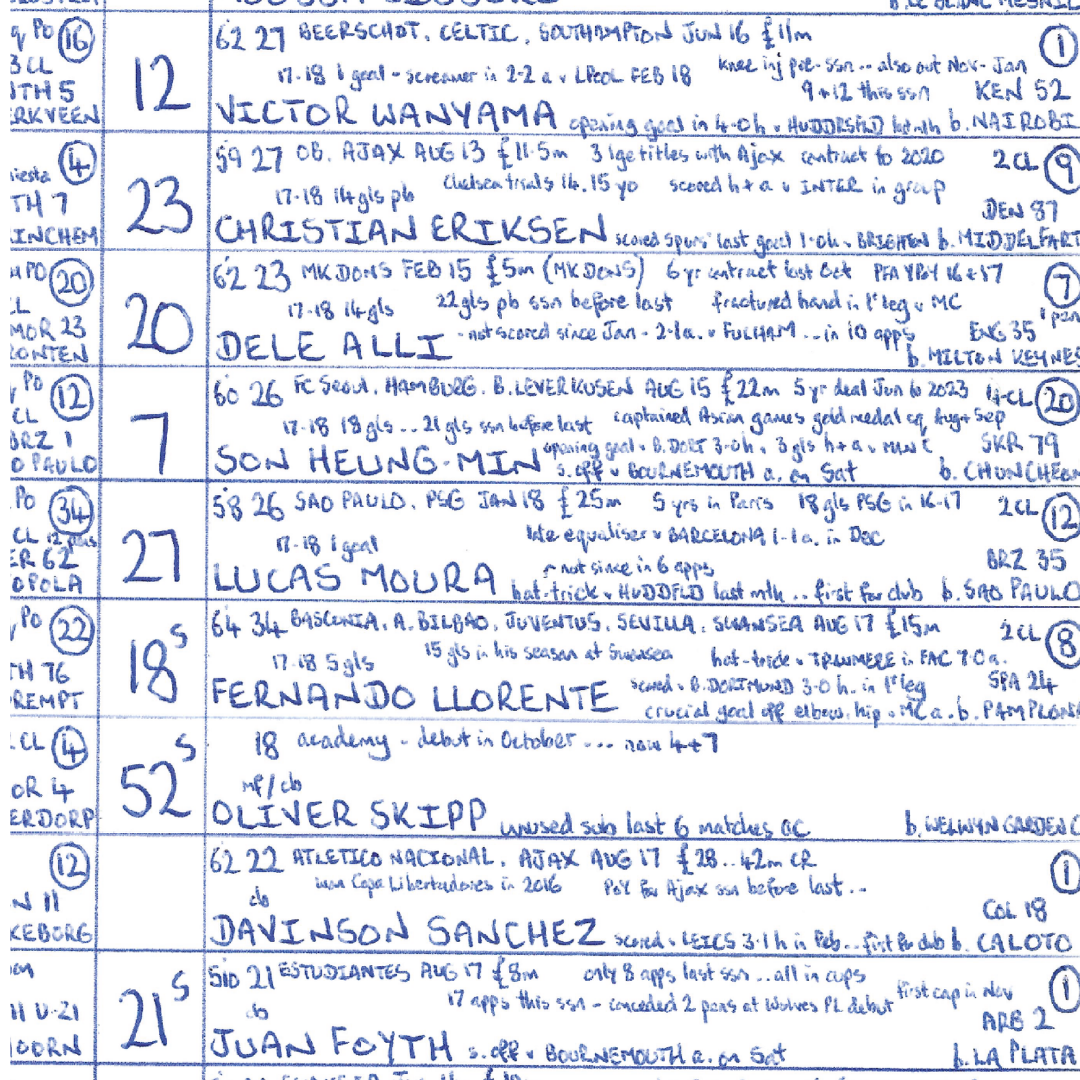 B. LE BLANC MESNIL
PO 16
3 CL
TH 5
ERKVEEN
12
62 27 BEERSCHOT, CELTIC, SOUTHAMPTON JUN 16 £11m
1
17-18 1 goal - screamer in 2-2 a v LPOOL FEB 18
knee inj pre-ssn .. also out Nov - Jan
9+12 this ssn
KEN 52
VICTOR WANYAMA opening goal in 4-0 h v HUDDRSFLD last mth b. NAIROBI
iesta 4
TH 7
INCHEM
23
59 27 OB, AJAX AUG 13 £11.5m 3 lge titles with Ajax contract to 2020
2CL 9
17-18 14 gls pb
Chelsea trials 14, 15 yo scored h+a v INTER in group
DEN 87
CHRISTIAN ERIKSEN scored Spurs' last goal 1-0 h v BRIGHTON b. MIDDELFART
PO 20
CL
MOR 23
ONTEN
20
62 23 MK DONS FEB 15 £5m (MK DONS) 6 yr contract last Oct PFA YPOY 16+17
7
1 pen
17-18 14 gls
22 gls pb ssn before last fractured hand in 1st leg v MC
- not scored since Jan - 2-1 a. v FULHAM ... in 10 apps
ENG 35
DELE ALLI
b. MILTON KEYNES
PO 12
CL
BRZ 1
O PAULO
7
60 26 FC Seoul, HAMBURG, B. LEVERKUSEN AUG 15 £22m 5 yr deal Jun to 2023
CL 20
17-18 18 gls .. 21 gls ssn before last
captained Asian games gold medal Aug + Sep
opening goal v B.DORT 3-0 h . 3 gls h+a v MAN C
SKR 79
SON HEUNG-MIN s. off v BOURNEMOUTH a. on Sat
b. CHUNCHEON
PO 34
CL 12 pens
ER 62
OPOLA
27
58 26 SAO PAULO, PSG JAN 18 £25m 5 yrs in Paris 18 gls PSG in 16-17
2CL 12
17-18 1 goal
late equaliser v BARCELONA 1-1 a. in Dec
not since in 6 apps
BRZ 35
LUCAS MOURA hat-trick v HUDDFLD last mth .. first for club b. SAO PAULO
PO 22
TH 76
REMPT
18 S
64 34 BASCONIA, A. BILBAO, JUVENTUS, SEVILLA, SWANSEA AUG 17 £15m
2CL 8
17-18 5 gls
15 gls in his season at Swansea hat-trick v TRANMERE in FAC 7-0 a.
scored v B.DORTMUND 3-0 h. in 1st leg
SPA 24
FERNANDO LLORENTE crucial goal off elbow, hip v MC a. b. PAMPLONA
CL 4
OR 4
ERDORP
52 S
18 academy - debut in October ... now 4+7
mf/cb
OLIVER SKIPP unused sub last 6 matches
b. WELWYN GARDEN C
12
N 11
KEBORG
62 22 ATLETICO NACIONAL, AJAX AUG 17 £28 .. 42m CR
1
won Copa Libertadores in 2016 PoY for Ajax ssn before last ..
cb
COL 18
DAVINSON SANCHEZ scored v LEICS 3-1 h in Feb .. first for club b. CALOTO
11 U-21
OORN
21 S
510 21 ESTUDIANTES AUG 17 £8m only 8 apps last ssn ... all in cups
1
17 apps this ssn - conceded 2 pens at Wolves PL debut
first cap in Nov
cb
ARG 2
JUAN FOYTH s. off v BOURNEMOUTH a. on Sat
b. LA PLATA